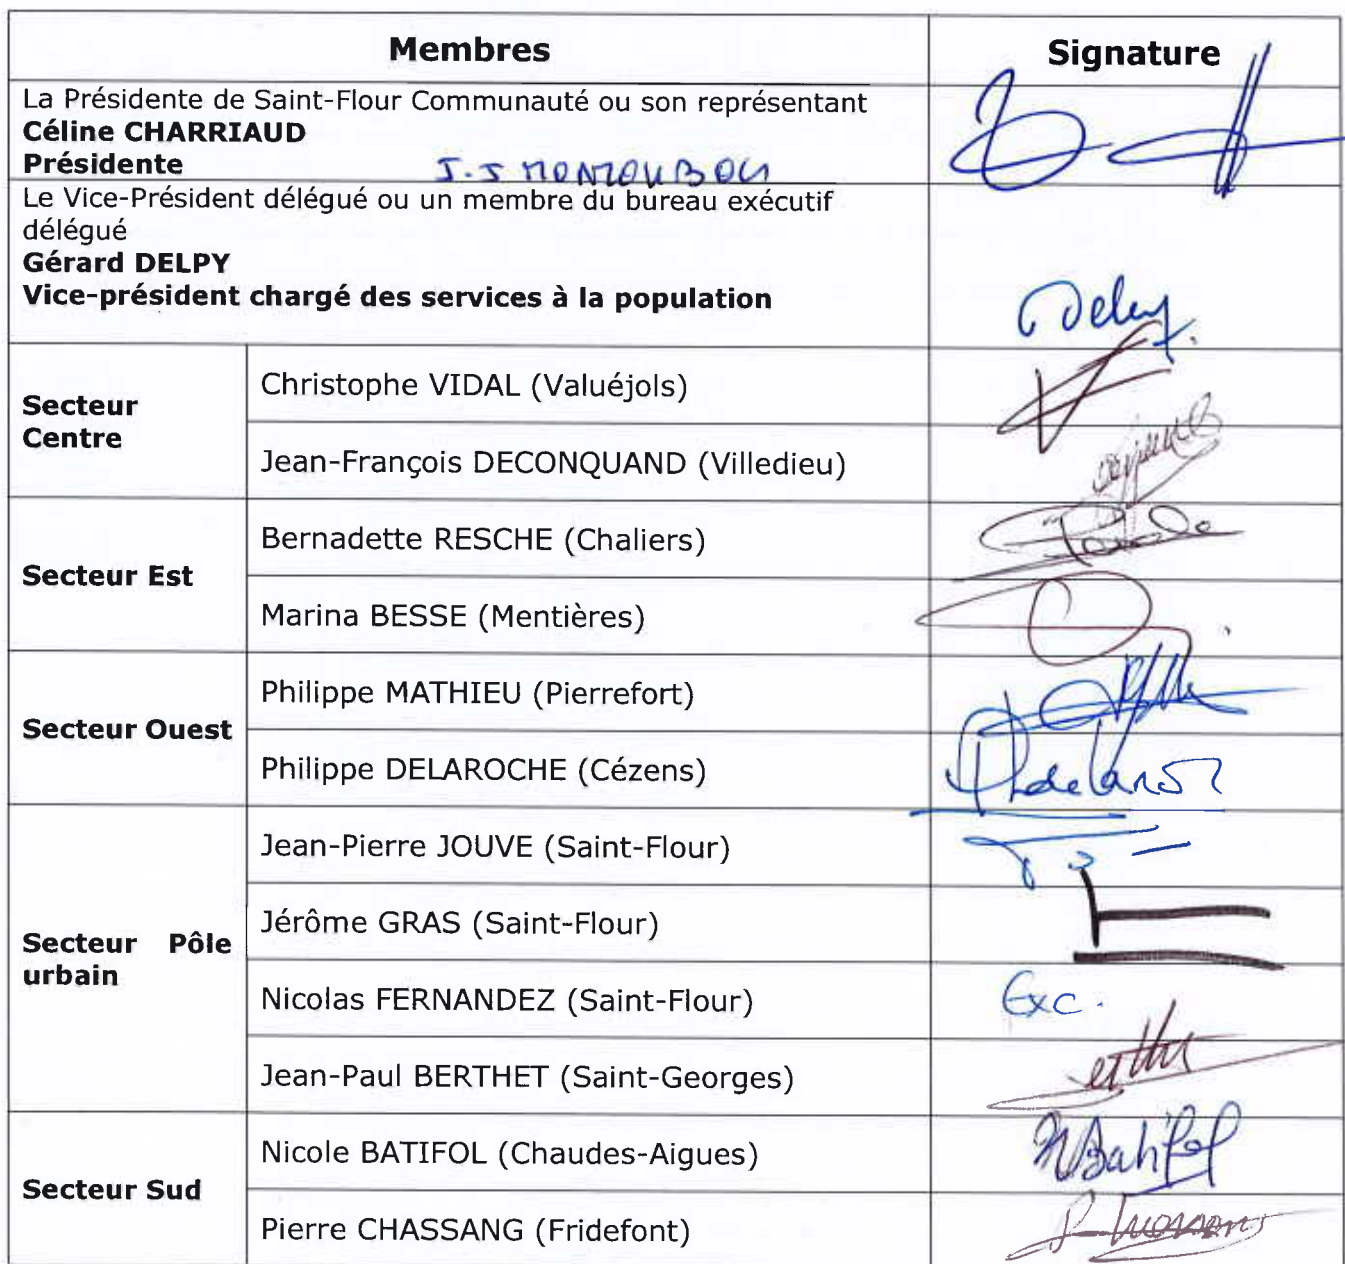 Membres Signature
La Présidente de Saint-Flour Communauté ou son représentant
Céline CHARRIAUD
Présidente J.J MONLOUBOU
Le Vice-Président délégué ou un membre du bureau exécutif
délégué
Gérard DELPY
Vice-président chargé des services à la population
Delpy
Secteur
Centre
Christophe VIDAL (Valuéjols)
Jean-François DECONQUAND (Villedieu)
Secteur Est
Bernadette RESCHE (Chaliers)
Marina BESSE (Mentières)
Secteur Ouest
Philippe MATHIEU (Pierrefort)
Philippe DELAROCHE (Cézens)
Secteur Pôle
urbain
Jean-Pierre JOUVE (Saint-Flour)
Jérôme GRAS (Saint-Flour)
Nicolas FERNANDEZ (Saint-Flour) Exc.
Jean-Paul BERTHET (Saint-Georges)
Secteur Sud
Nicole BATIFOL (Chaudes-Aigues) NBatifol
Pierre CHASSANG (Fridefont)